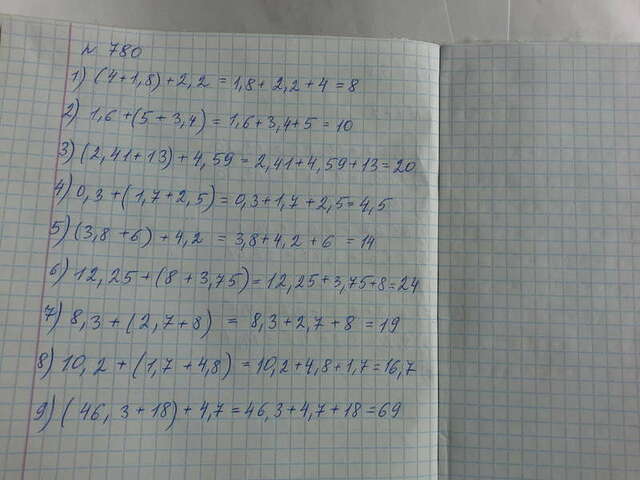 № 780
1) (4+1,8)+2,2 = 1,8 + 2,2 + 4 = 8
2) 1,6 + (5 + 3,4) = 1,6 + 3,4 + 5 = 10
3) (2,41 + 13) + 4,59 = 2,41 + 4,59 + 13 = 20
4) 0,3 + (1,7 + 2,5) = 0,3 + 1,7 + 2,5 = 4,5
5) (3,8 + 6) + 4,2 = 3,8 + 4,2 + 6 = 14
6) 12,25 + (8 + 3,75) = 12,25 + 3,75 + 8 = 24
7) 8,3 + (2,7 + 8) = 8,3 + 2,7 + 8 = 19
8) 10,2 + (1,7 + 4,8) = 10,2 + 4,8 + 1,7 = 16,7
9) (46,3 + 18) + 4,7 = 46,3 + 4,7 + 18 = 69